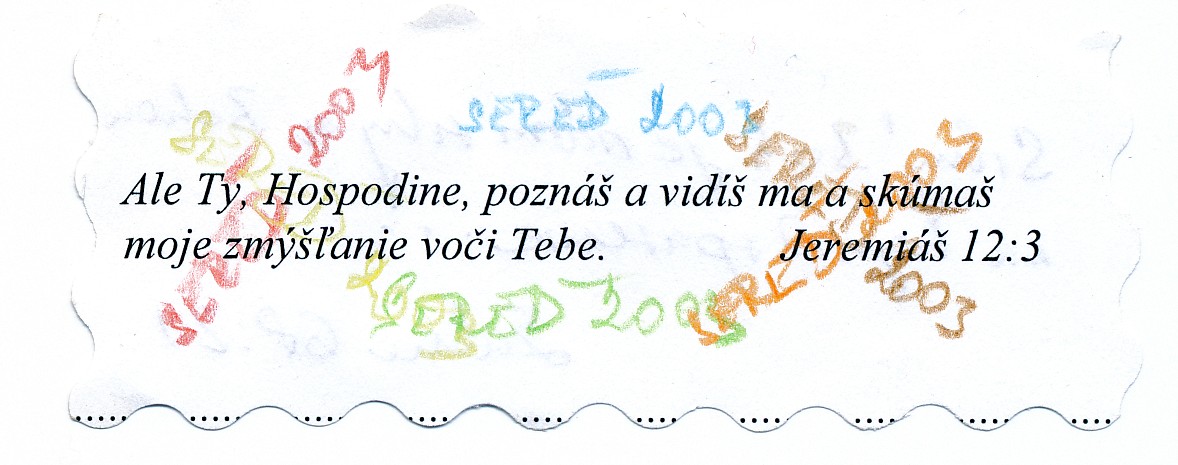 SEREĎ 2003
SEREĎ 2003
SEREĎ 2003
SEREĎ 2003
Ale Ty, Hospodine, poznáš a vidíš ma a skúmaš
moje zmýšľanie voči Tebe. Jeremiáš 12:3
SEREĎ 2003